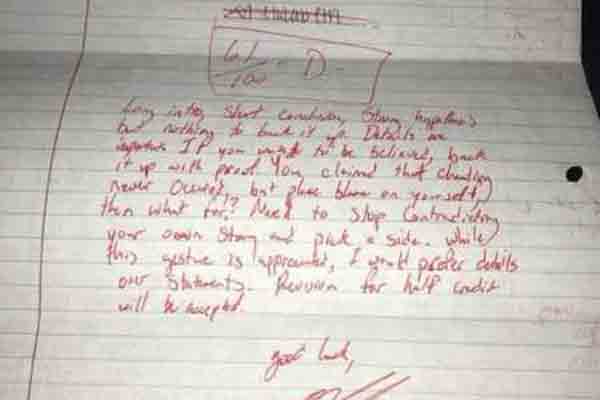 61
100
D-
Long intro, Short Conclusion, Strong hypothesis
but nothing to back it up. Details are
important If you want to be believed, back
it up with proof. You claimed that cheating
never occured, but place blame on yourself,
then what for!? Need to stop contradicting
your own story and pick a side. While
this gesture is appreciated, I would prefer details
over statements. Revision for half credit
will be accepted.
good luck,